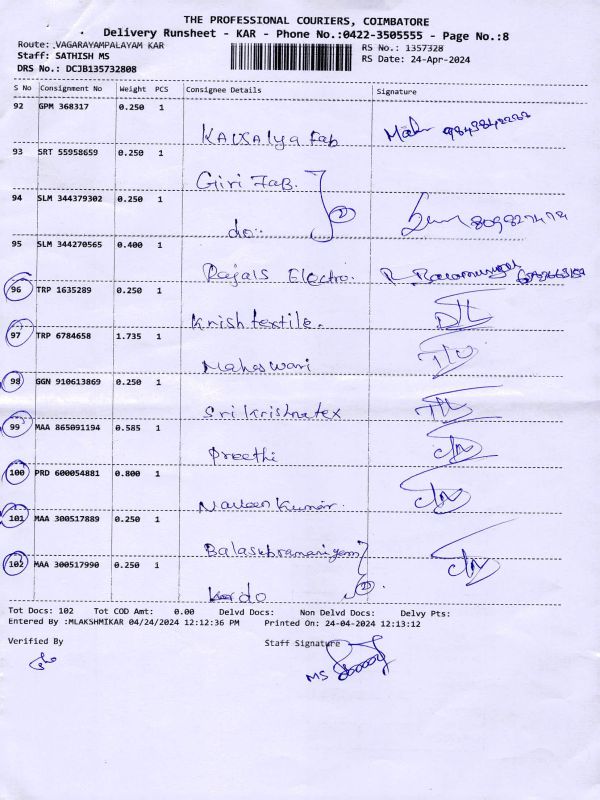 THE PROFESSIONAL COURIERS, COIMBATORE
Delivery Runsheet - KAR - Phone No.:0422-3505555 - Page No.:8
Route: VAGARAYAMPALAYAM KAR
RS No.: 1357328
Staff: SATHISH MS
RS Date: 24-Apr-2024
DRS No.: DCJB135732808
S No Consignment No Weight PCS Consignee Details Signature
92 GPM 368317 0.250 1
KAUSALYA Fab
93 SRT 55958659 0.250 1
Giri Fab.
94 SLM 344379302 0.250 1
do.. 2
95 SLM 344270565 0.400 1
Rajals Electro.
96 TRP 1635289 0.250 1
Krish textile.
97 TRP 6784658 1.735 1
Maheswari
98 GGN 910613869 0.250 1
Sri Krishnatex
99 MAA 865091194 0.585 1
Preethi
100 PRD 600054881 0.800 1
Naveen Kumar.
101 MAA 300517889 0.250 1
Balasubramaniyam
102 MAA 300517990 0.250 1
do 2
Tot Docs: 102 Tot COD Amt: 0.00 Delvd Docs: Non Delvd Docs: Delvy Pts:
Entered By :MLAKSHMIKAR 04/24/2024 12:12:36 PM Printed On: 24-04-2024 12:13:12
Verified By Staff Signature
MS